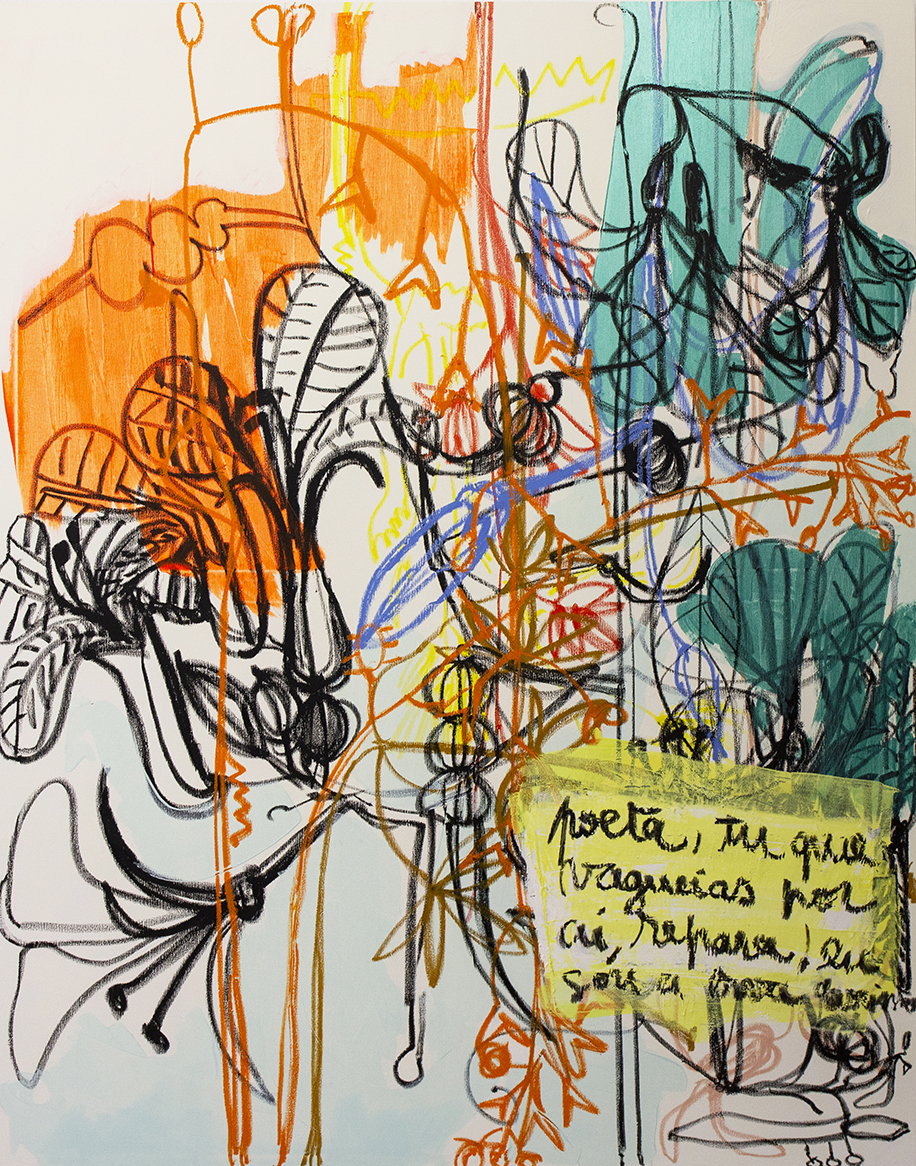 poeta, tu que
vagueias por
aí, repara! eu
sou a